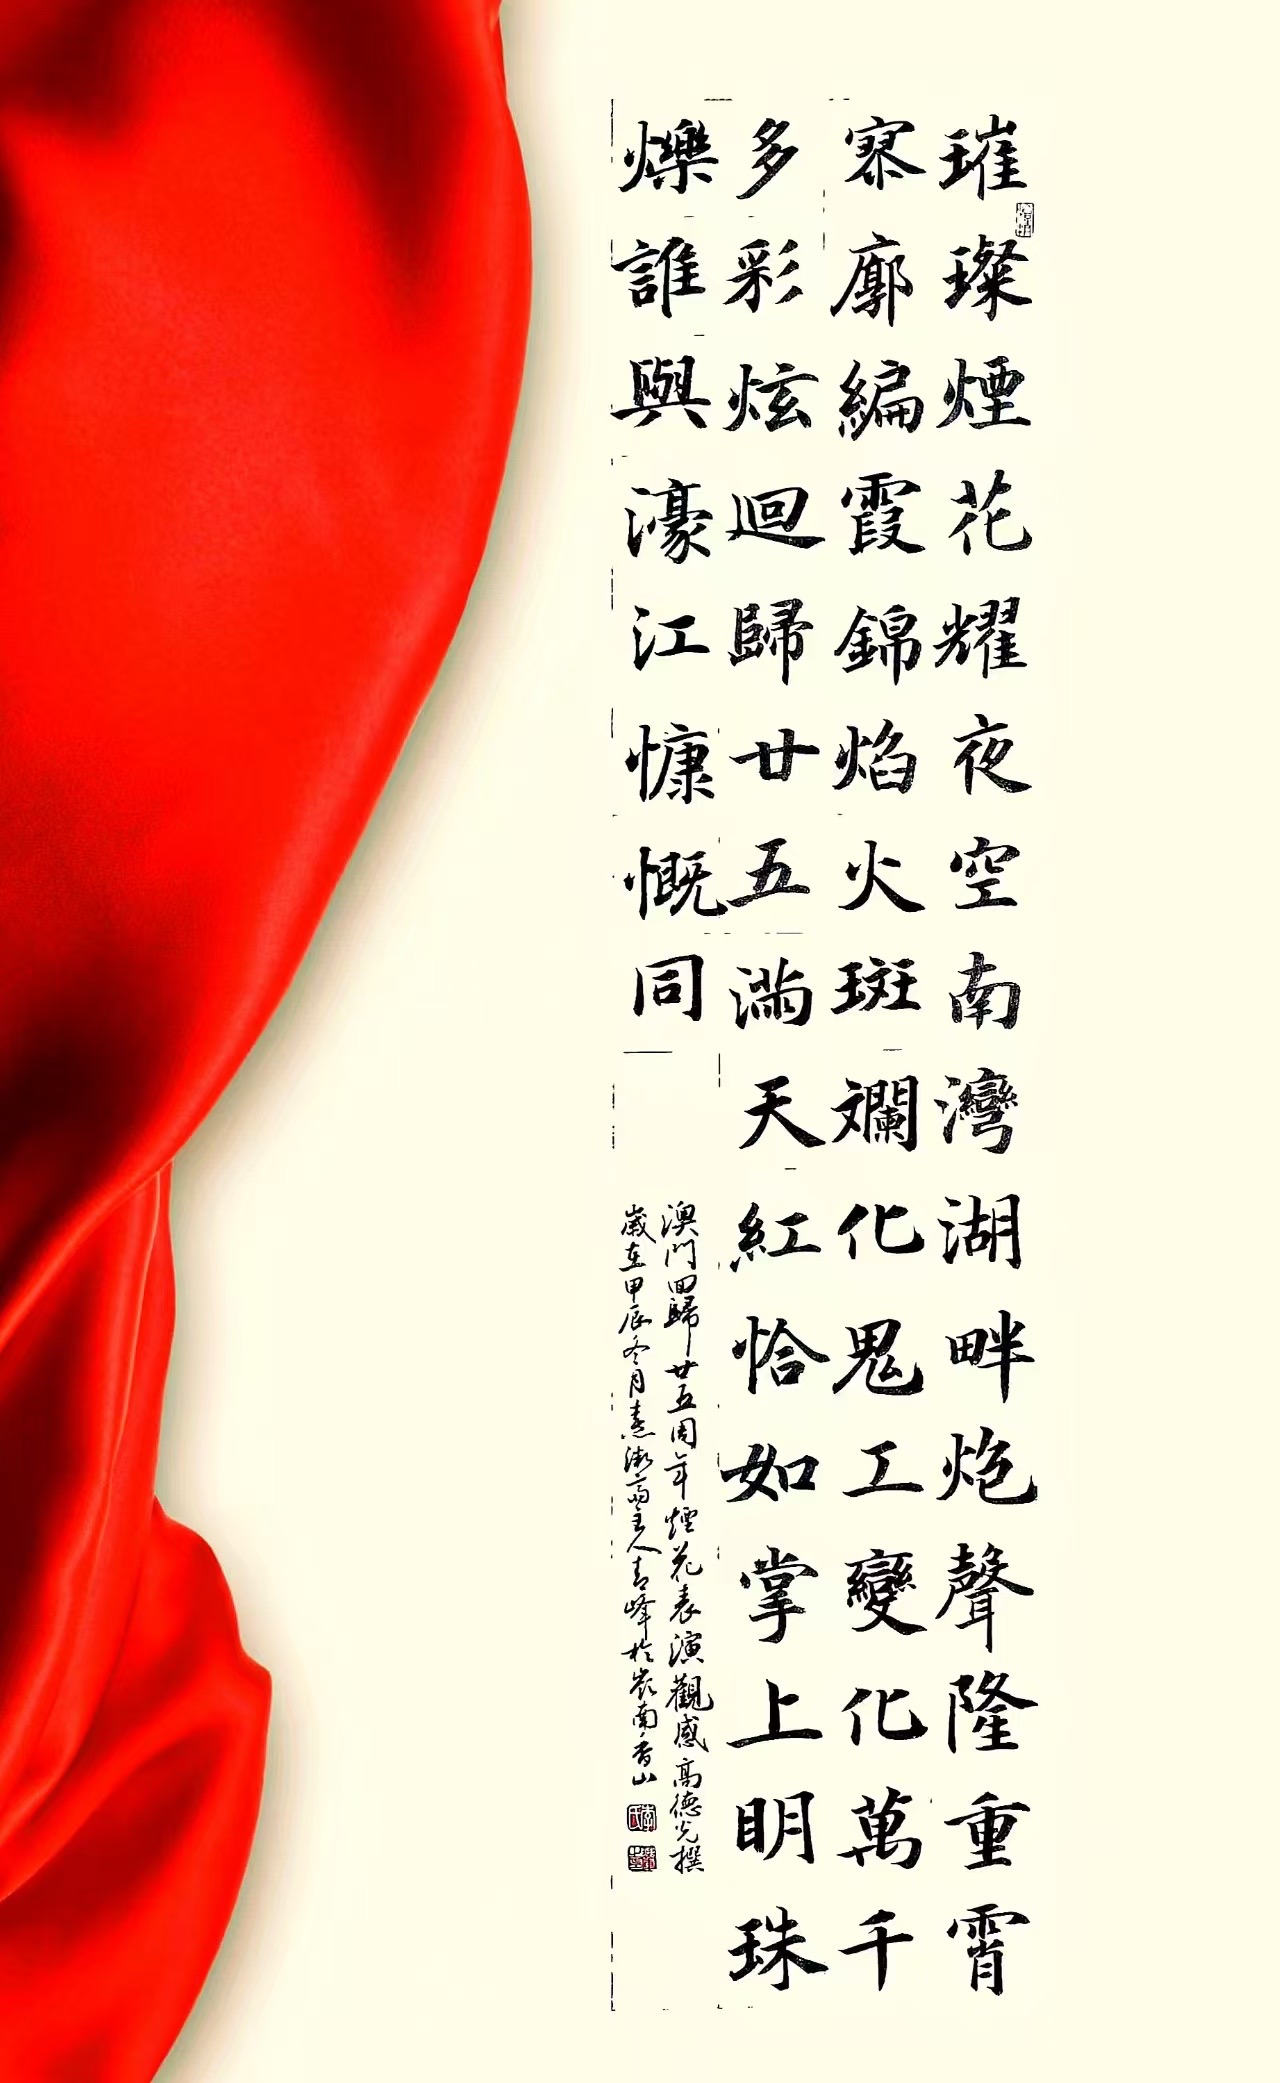 璀璨煙花耀夜空南灣湖畔炮聲隆重霄
寥廓編霞錦焰火斑斕化鬼工變化萬千
多彩炫迴歸廿五滿天紅恰如掌上明珠
爍誰與濠江慷慨同
澳門回歸廿五周年煙花表演觀感高德光撰
歲在甲辰冬月熹微齋主人青峰於嶺南香山